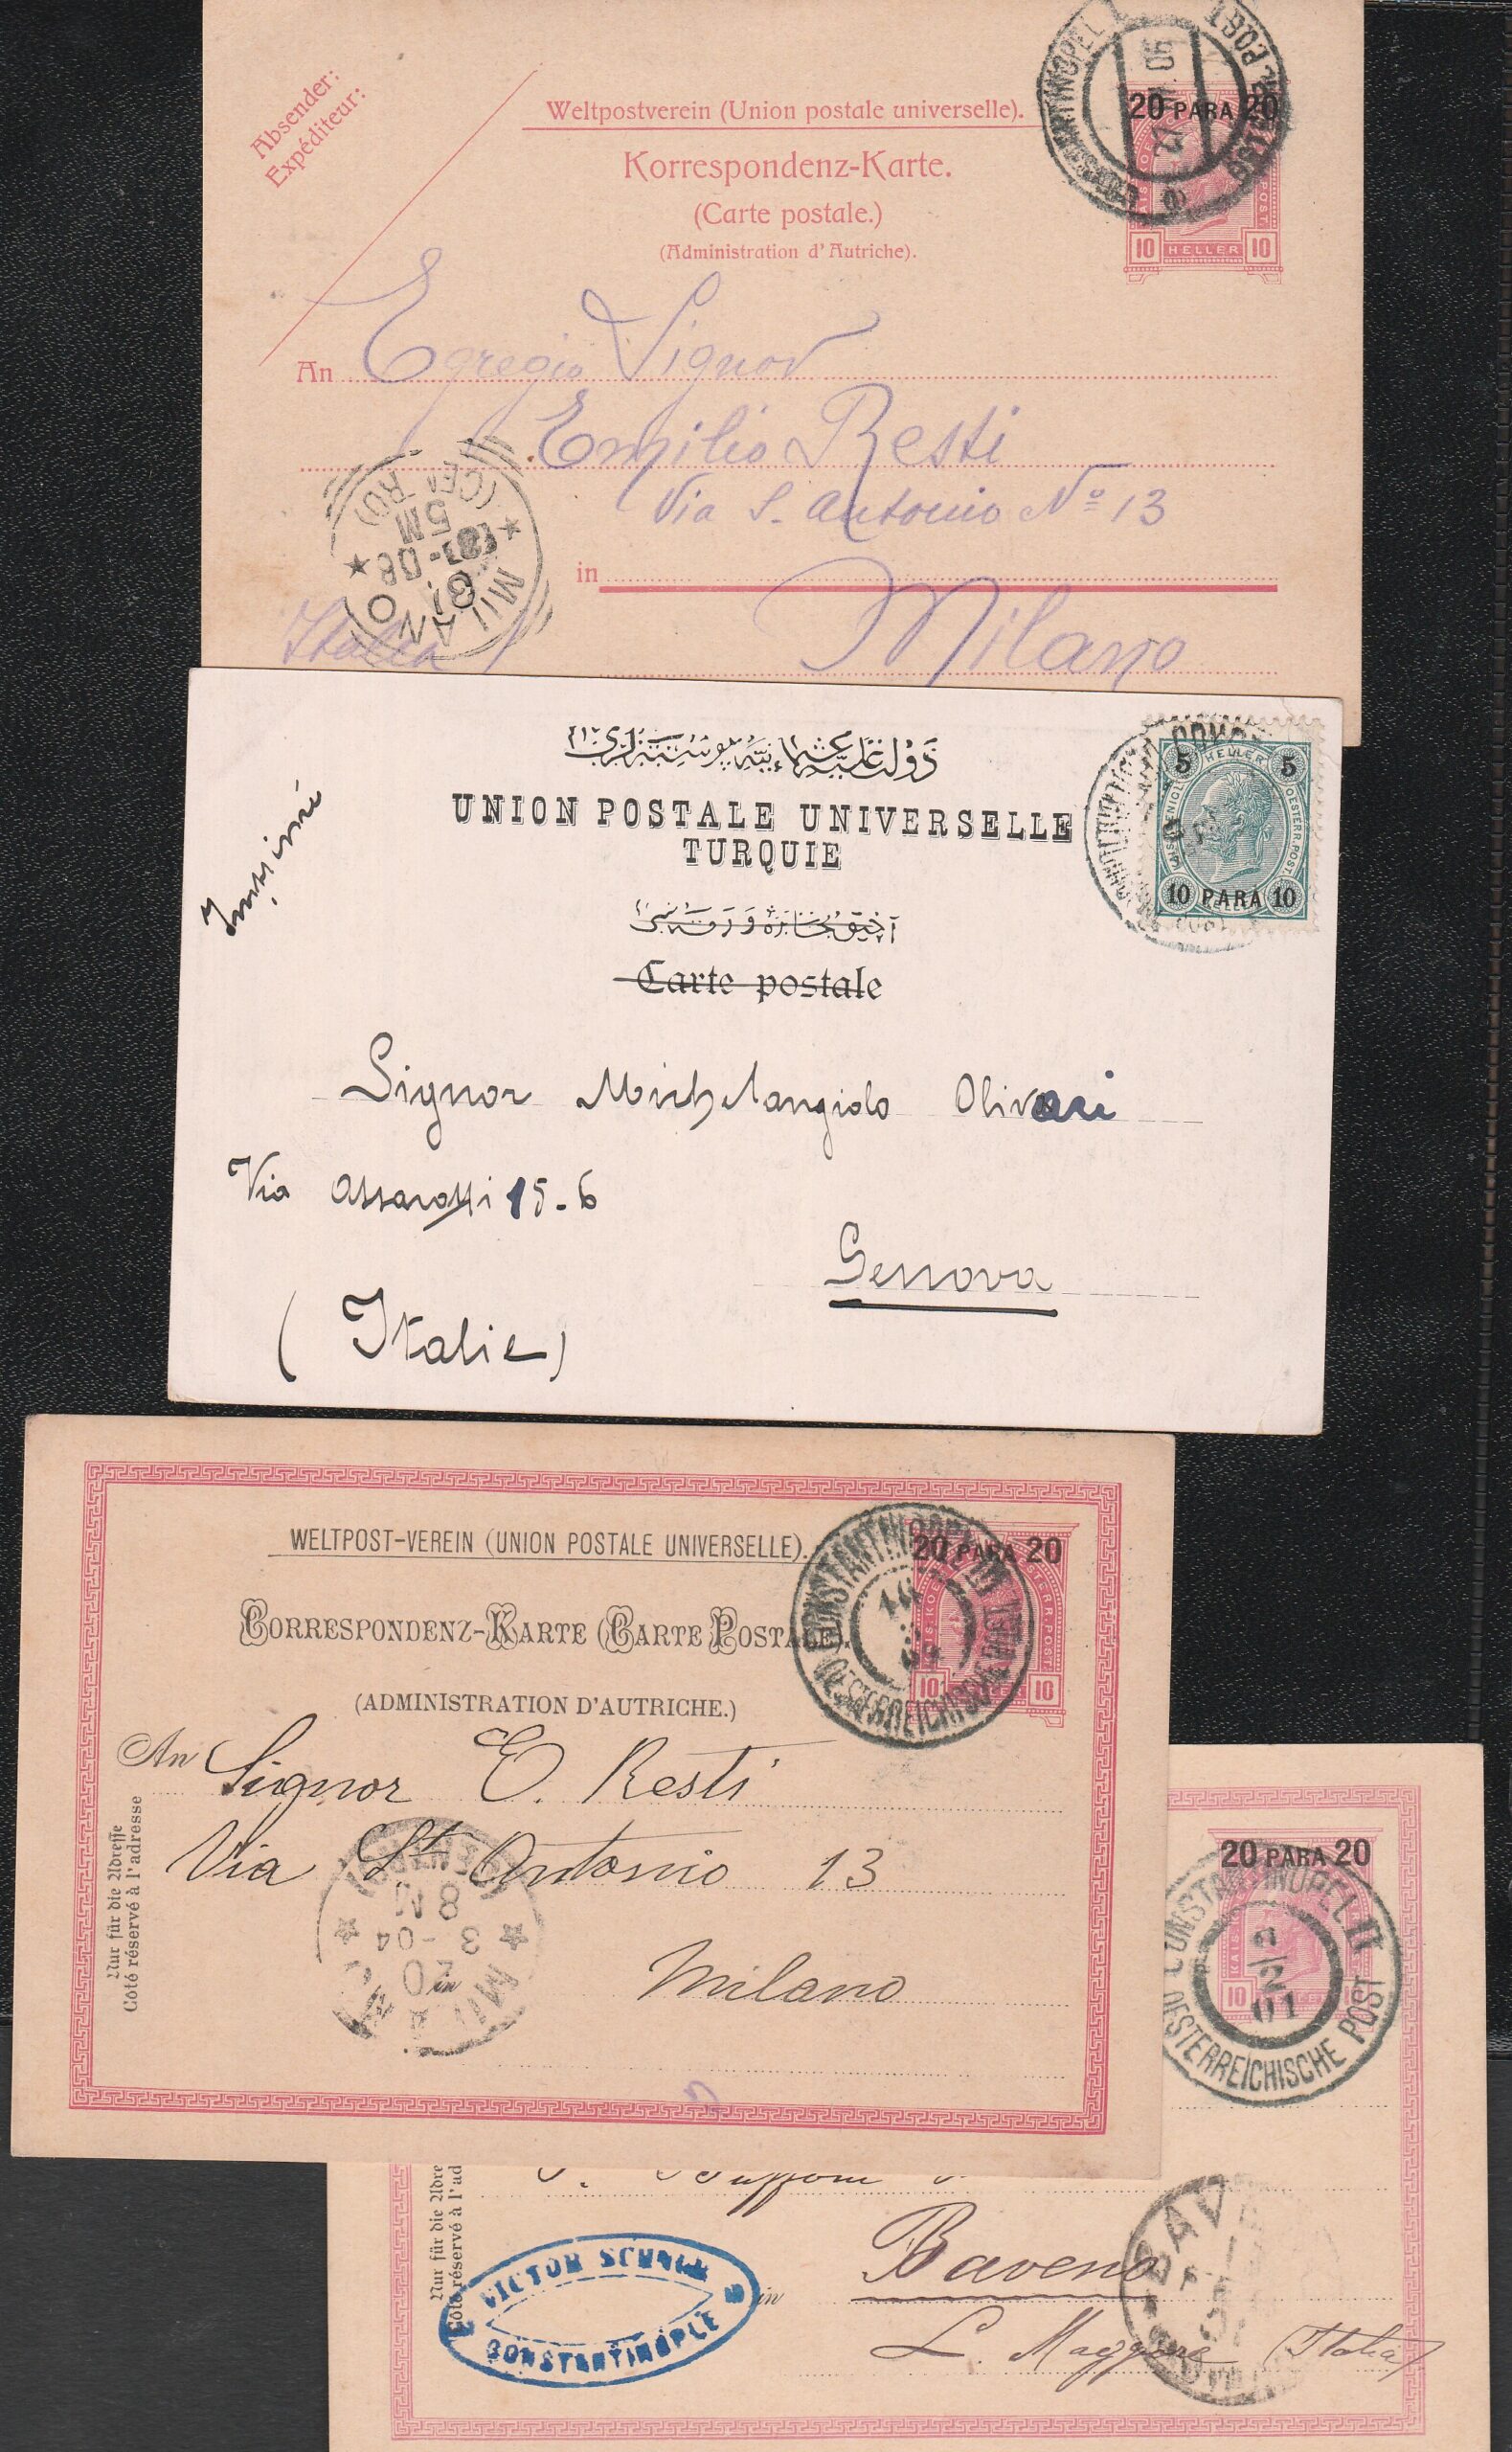 Absender:
Expéditeur:
Weltpostverein (Union postale universelle).
Korrespondenz-Karte.
(Carte postale.)
(Administration d'Autriche).
CONSTANTINOPEL I
20 PARA 20
10 HELLER 10
An Egregio Signor
Emilio Resti
Via S. Antonio Nº 13
in Milano
Italia
MILANO
5M
دولت علیه عثمانیه پوسته لری
UNION POSTALE UNIVERSELLE
TURQUIE
Carte postale
5 HELLER 5
OESTERR.POST.
10 PARA 10
Signor Michelangiolo Olivari
Via Assarotti 15-6
Genova
(Italie)
WELTPOST-VEREIN (UNION POSTALE UNIVERSELLE).
CORRESPONDENZ-KARTE (CARTE POSTALE).
(ADMINISTRATION D'AUTRICHE.)
20 PARA 20
10 HELLER 10
CONSTANTINOPEL III
OESTERREICHISCHE POST
An Signor E. Resti
Via St Antonio 13
in Milano
Nur für die Adresse
Côté réservé à l'adresse
MILANO
20
3 - 04
8M
20 PARA 20
10
CONSTANTINOPEL II
2/2
01
OESTERREICHISCHE POST
Nur für die Adre
Côté réservé à l'ad
in Baveno
L. Maggiore (Italia)
VICTOR
CONSTANTINOPLE